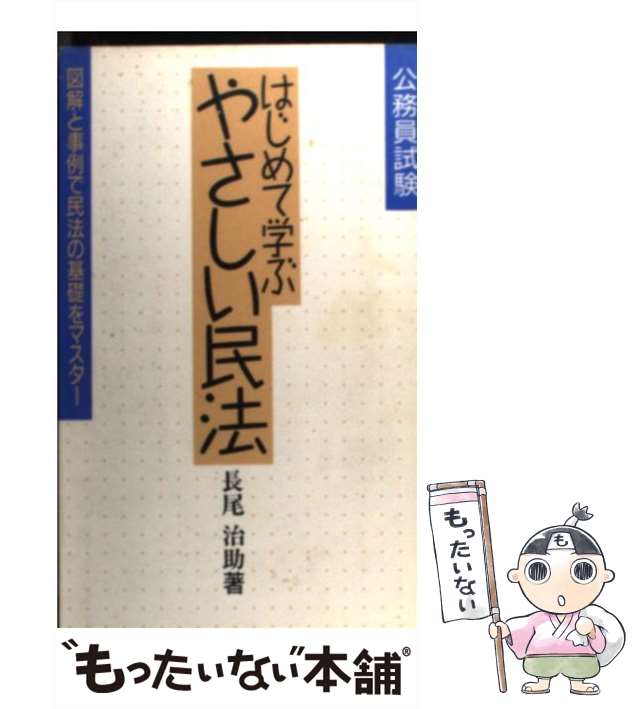 公務員試験
はじめて学ぶ
やさしい民法
長尾 治助著
図解と事例で民法の基礎をマスター
も
もったいない
“もったいない”本舗®